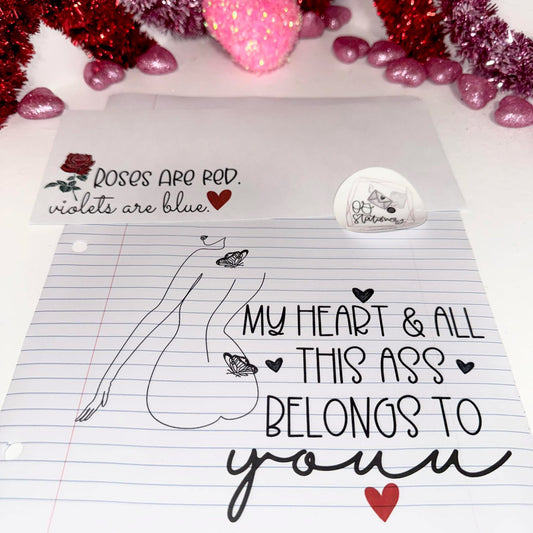 ROSES ARE RED.
violets are blue.
Stationery
MY HEART & ALL
THIS ASS
BELONGS TO
youu